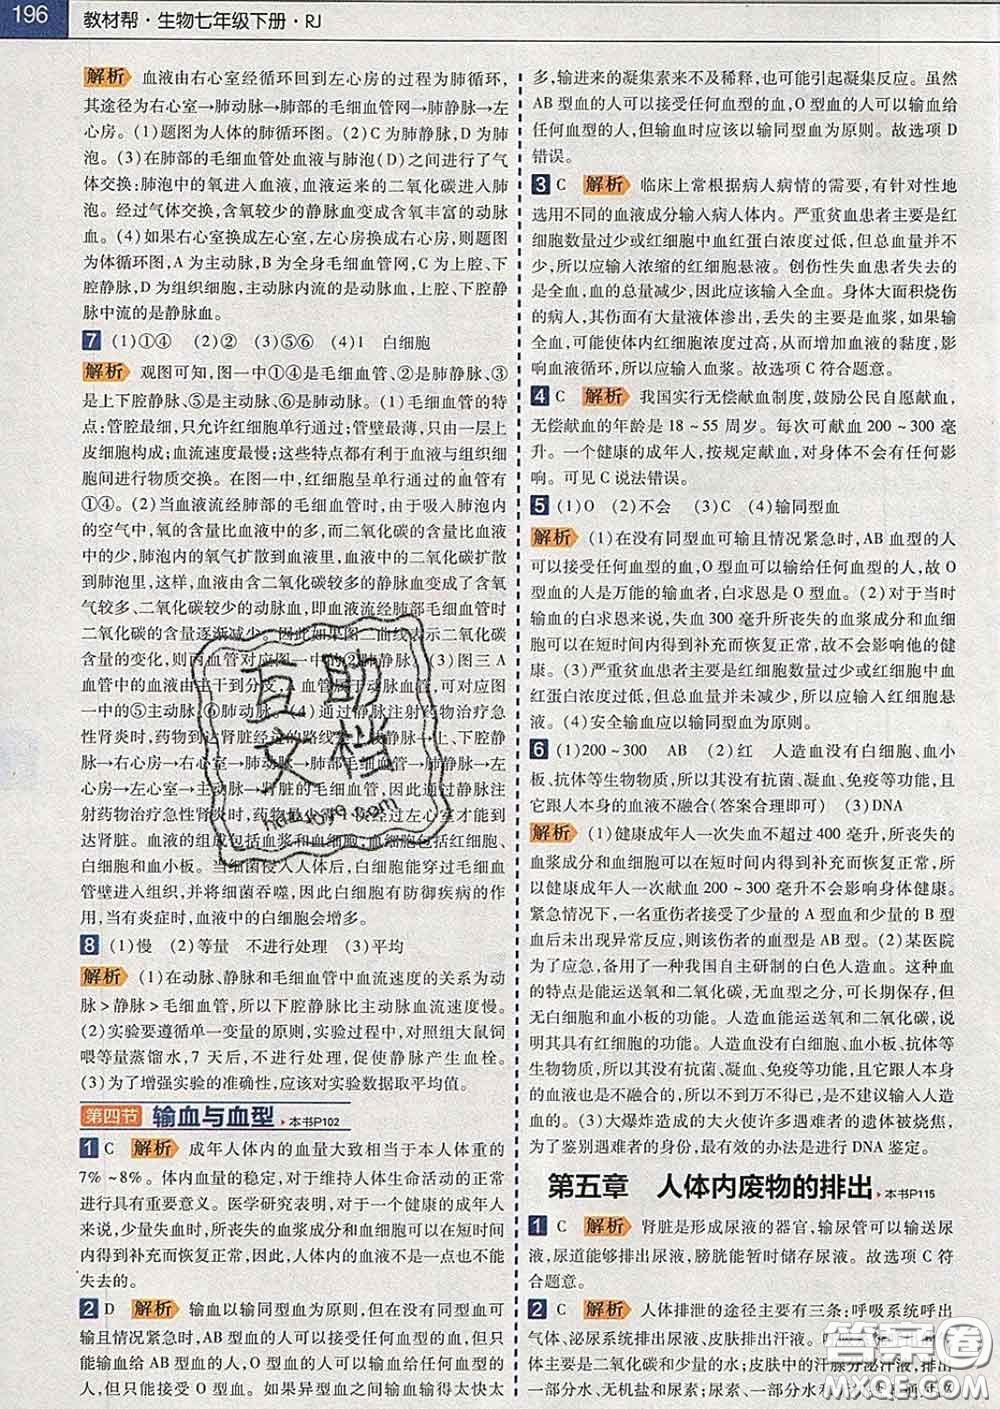 196
教材帮·生物七年级下册·RJ
解析 血液由右心室经循环回到左心房的过程为肺循环,
其途径为右心室→肺动脉→肺部的毛细血管网→肺静脉→左
心房。(1)题图为人体的肺循环图。(2)C 为肺静脉,D 为肺
泡。(3)在肺部的毛细血管处血液与肺泡(D)之间进行了气
体交换:肺泡中的氧进入血液,血液运来的二氧化碳进入肺
泡。经过气体交换,含氧较少的静脉血变成含氧丰富的动脉
血。(4)如果右心室换成左心室,左心房换成右心房,则题图
为体循环图,A 为主动脉,B 为全身毛细血管网,C 为上腔、下
腔静脉,D 为组织细胞,主动脉内流的是动脉血,上腔、下腔静
脉中流的是静脉血。
7 (1)①④ (2)② (3)⑤⑥ (4)1 白细胞
解析 观图可知,图一中①④是毛细血管、②是肺静脉、③
是上下腔静脉、⑤是主动脉、⑥是肺动脉。(1)毛细血管的特
点:管腔最细,只允许红细胞单行通过;管壁最薄,只由一层上
皮细胞构成;血流速度最慢;这些特点都有利于血液与组织细
胞间进行物质交换。在图一中,红细胞呈单行通过的血管有
①④。(2)当血液流经肺部的毛细血管时,由于吸入肺泡内
的空气中,氧的含量比血液中的多,而二氧化碳的含量比血液
中的少,肺泡内的氧气扩散到血液里,血液中的二氧化碳扩散
到肺泡里,这样,血液由含二氧化碳较多的静脉血变成了含氧
气较多、二氧化碳较少的动脉血,即血液流经肺部毛细血管时
二氧化碳的含量逐渐减少。因此如果图二曲线表示二氧化碳
含量的变化,则丙血管对应图一中的②肺静脉。(3)图三 A
血管中的血液由主干到分支,A 血管属于动脉血管,可对应图
一中的⑤主动脉、⑥肺动脉。(4)通过静脉注射药物治疗急
性肾炎时,药物到达肾脏经过的路线:上、下腔静脉→右心房
→右心室→肺动脉→肺部毛细血管→肺静脉→左心房→左心
室→主动脉→肾动脉→肾脏的毛细血管,因此通过静脉注
射药物治疗急性肾炎时,药物最少经过1次心室才能到
达肾脏。血液的组成包括血浆和血细胞,血细胞包括红细胞、
白细胞和血小板。当细菌侵入人体后,白细胞能穿过毛细血
管壁进入组织,并将细菌吞噬,因此白细胞有防御疾病的作
用,当有炎症时,血液中的白细胞会增多。
8 (1)慢 (2)等量 不进行处理 (3)平均
解析 (1)在动脉、静脉和毛细血管中血流速度的关系为动
脉>静脉>毛细血管,所以下腔静脉比主动脉血流速度慢。
(2)实验要遵循单一变量的原则,实验过程中,对照组大鼠饲
喂等量蒸馏水,7 天后,不进行处理,促使静脉产生血栓。
(3)为了增强实验的准确性,应该对实验数据取平均值。
第四节 输血与血型 本书P102
1 C 解析 成年人体内的血量大致相当于本人体重的
7%~8%。体内血量的稳定,对于维持人体生命活动的正常
进行具有重要意义。医学研究表明,对于一个健康的成年人
来说,少量失血时,所丧失的血浆成分和血细胞可以在短时间
内得到补充而恢复正常,因此,人体内的血液不是一点也不能
失去的。
2 D 解析 输血以输同型血为原则,但在没有同型血可输
且情况紧急时,AB 血型的人可以接受任何血型的血,O 型血
的人可以输血给任何血型的人,AB 型的人只能输给 AB 型的
人,但只能接受 O 型血。如果异型血之间输血输得太快太
多,输进来的凝集素来不及稀释,也可能引起凝集反应。虽然
AB 型血的人可以接受任何血型的血,O 型血的人可以输血给
任何血型的人,但输血时应该以输同型血为原则。故选项 D
错误。
3 C 解析 临床上常根据病人病情的需要,有针对性地
选用不同的血液成分输入病人体内。严重贫血患者主要是红
细胞数量过少或红细胞中血红蛋白浓度过低,但总血量并不
少,所以应输入浓缩的红细胞悬液。创伤性失血患者失去的
是全血,血的总量减少,因此应该输入全血。身体大面积烧伤
的病人,其伤面有大量液体渗出,丢失的主要是血浆,如果输
全血,可能使体内红细胞浓度过高,从而增加血液的黏度,影
响血液循环,所以应输入血浆。故选项 C 符合题意。
4 C 解析 我国实行无偿献血制度,鼓励公民自愿献血,
无偿献血的年龄是 18~55 周岁。每次可献血 200~300 毫
升。一个健康的成年人,按规定献血,对身体不会有任何影
响。可见 C 说法错误。
5 (1)O (2)不会 (3)C (4)输同型血
解析 (1)在没有同型血可输且情况紧急时,AB 血型的人
可以接受任何血型的血,O 型血可以输给任何血型的人,故 O
型血的人是万能的输血者,白求恩是 O 型血。(2)对于当时
输血的白求恩来说,失血 300 毫升所丧失的血浆成分和血细
胞可以在短时间内得到补充而恢复正常,故不会影响他的健
康。(3)严重贫血患者主要是红细胞数量过少或红细胞中血
红蛋白浓度过低,但总血量并未减少,所以应输入红细胞悬
液。(4)安全输血应以输同型血为原则。
6 (1)200~300 AB (2)红 人造血没有白细胞、血小
板、抗体等生物物质,所以其没有抗菌、凝血、免疫等功能,且
它跟人本身的血液不融合(答案合理即可) (3)DNA
解析 (1)健康成年人一次失血不超过 400 毫升,所丧失的
血浆成分和血细胞可以在短时间内得到补充而恢复正常,所
以健康成年人一次献血 200~300 毫升不会影响身体健康。
紧急情况下,一名重伤者接受了少量的 A 型血和少量的 B 型
血后未出现异常反应,则该伤者的血型是 AB 型。(2)某医院
为了应急,备用了一种我国自主研制的白色人造血。这种血
的特点是能运送氧和二氧化碳,无血型之分,可长期保存,但
无白细胞和血小板的功能。人造血能运送氧和二氧化碳,说
明其具有红细胞的功能。人造血没有白细胞、血小板、抗体等
生物物质,所以其没有抗菌、凝血、免疫等功能,且它跟人本身
的血液是不融合的,所以不到万不得已,是不建议输入人造血
的。(3)大爆炸造成的大火使许多遇难者的遗体被烧焦,
为了鉴别遇难者的身份,最有效的办法是进行 DNA 鉴定。
第五章 人体内废物的排出 本书P115
1 C 解析 肾脏是形成尿液的器官,输尿管可以输送尿
液,尿道能够排出尿液,膀胱能暂时储存尿液。故选项 C 符
合题意。
2 C 解析 人体排泄的途径主要有三条:呼吸系统呼出
气体、泌尿系统排出尿液、皮肤排出汗液。
主要是二氧化碳和少量的水;皮肤中的汗腺分泌汗液,排出
一部分水、无机盐和尿素;尿素、一部分水和
互助文档
答案圈